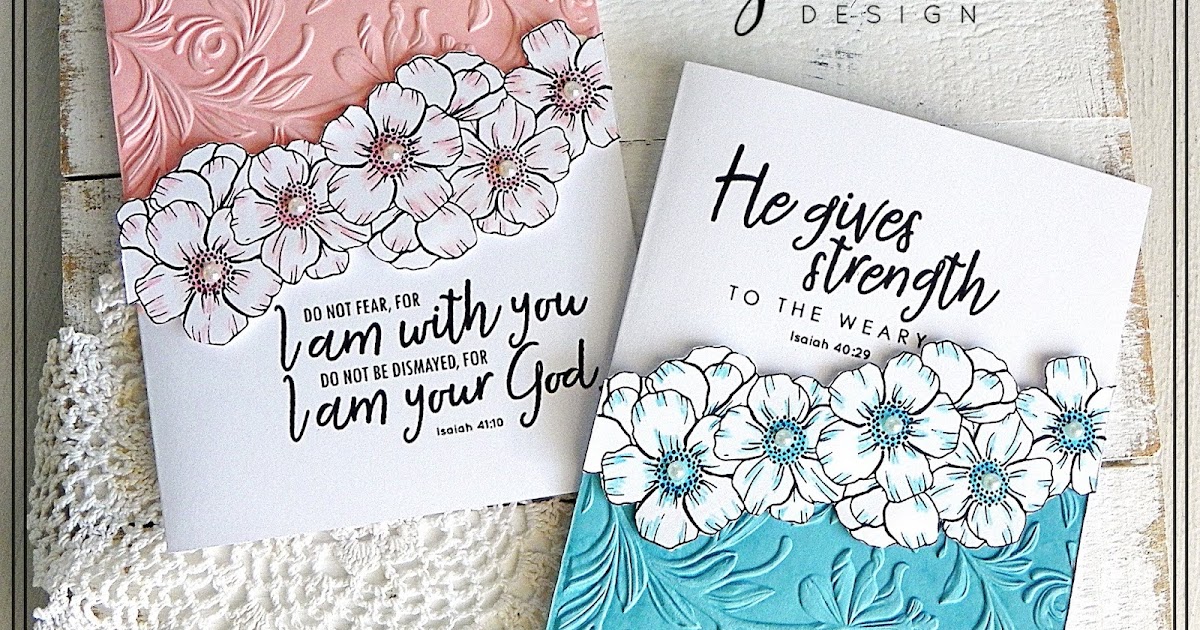 DESIGN
DO NOT FEAR, FOR
I am with you
DO NOT BE DISMAYED, FOR
I am your God.
Isaiah 41:10
He gives
strength
TO THE WEARY
Isaiah 40:29